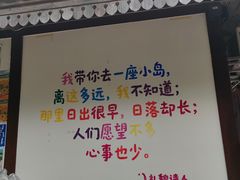 我带你去一座小岛,
离这多远,我不知道;
那里日出很早,日落却长;
人们愿望不多
心事也少。